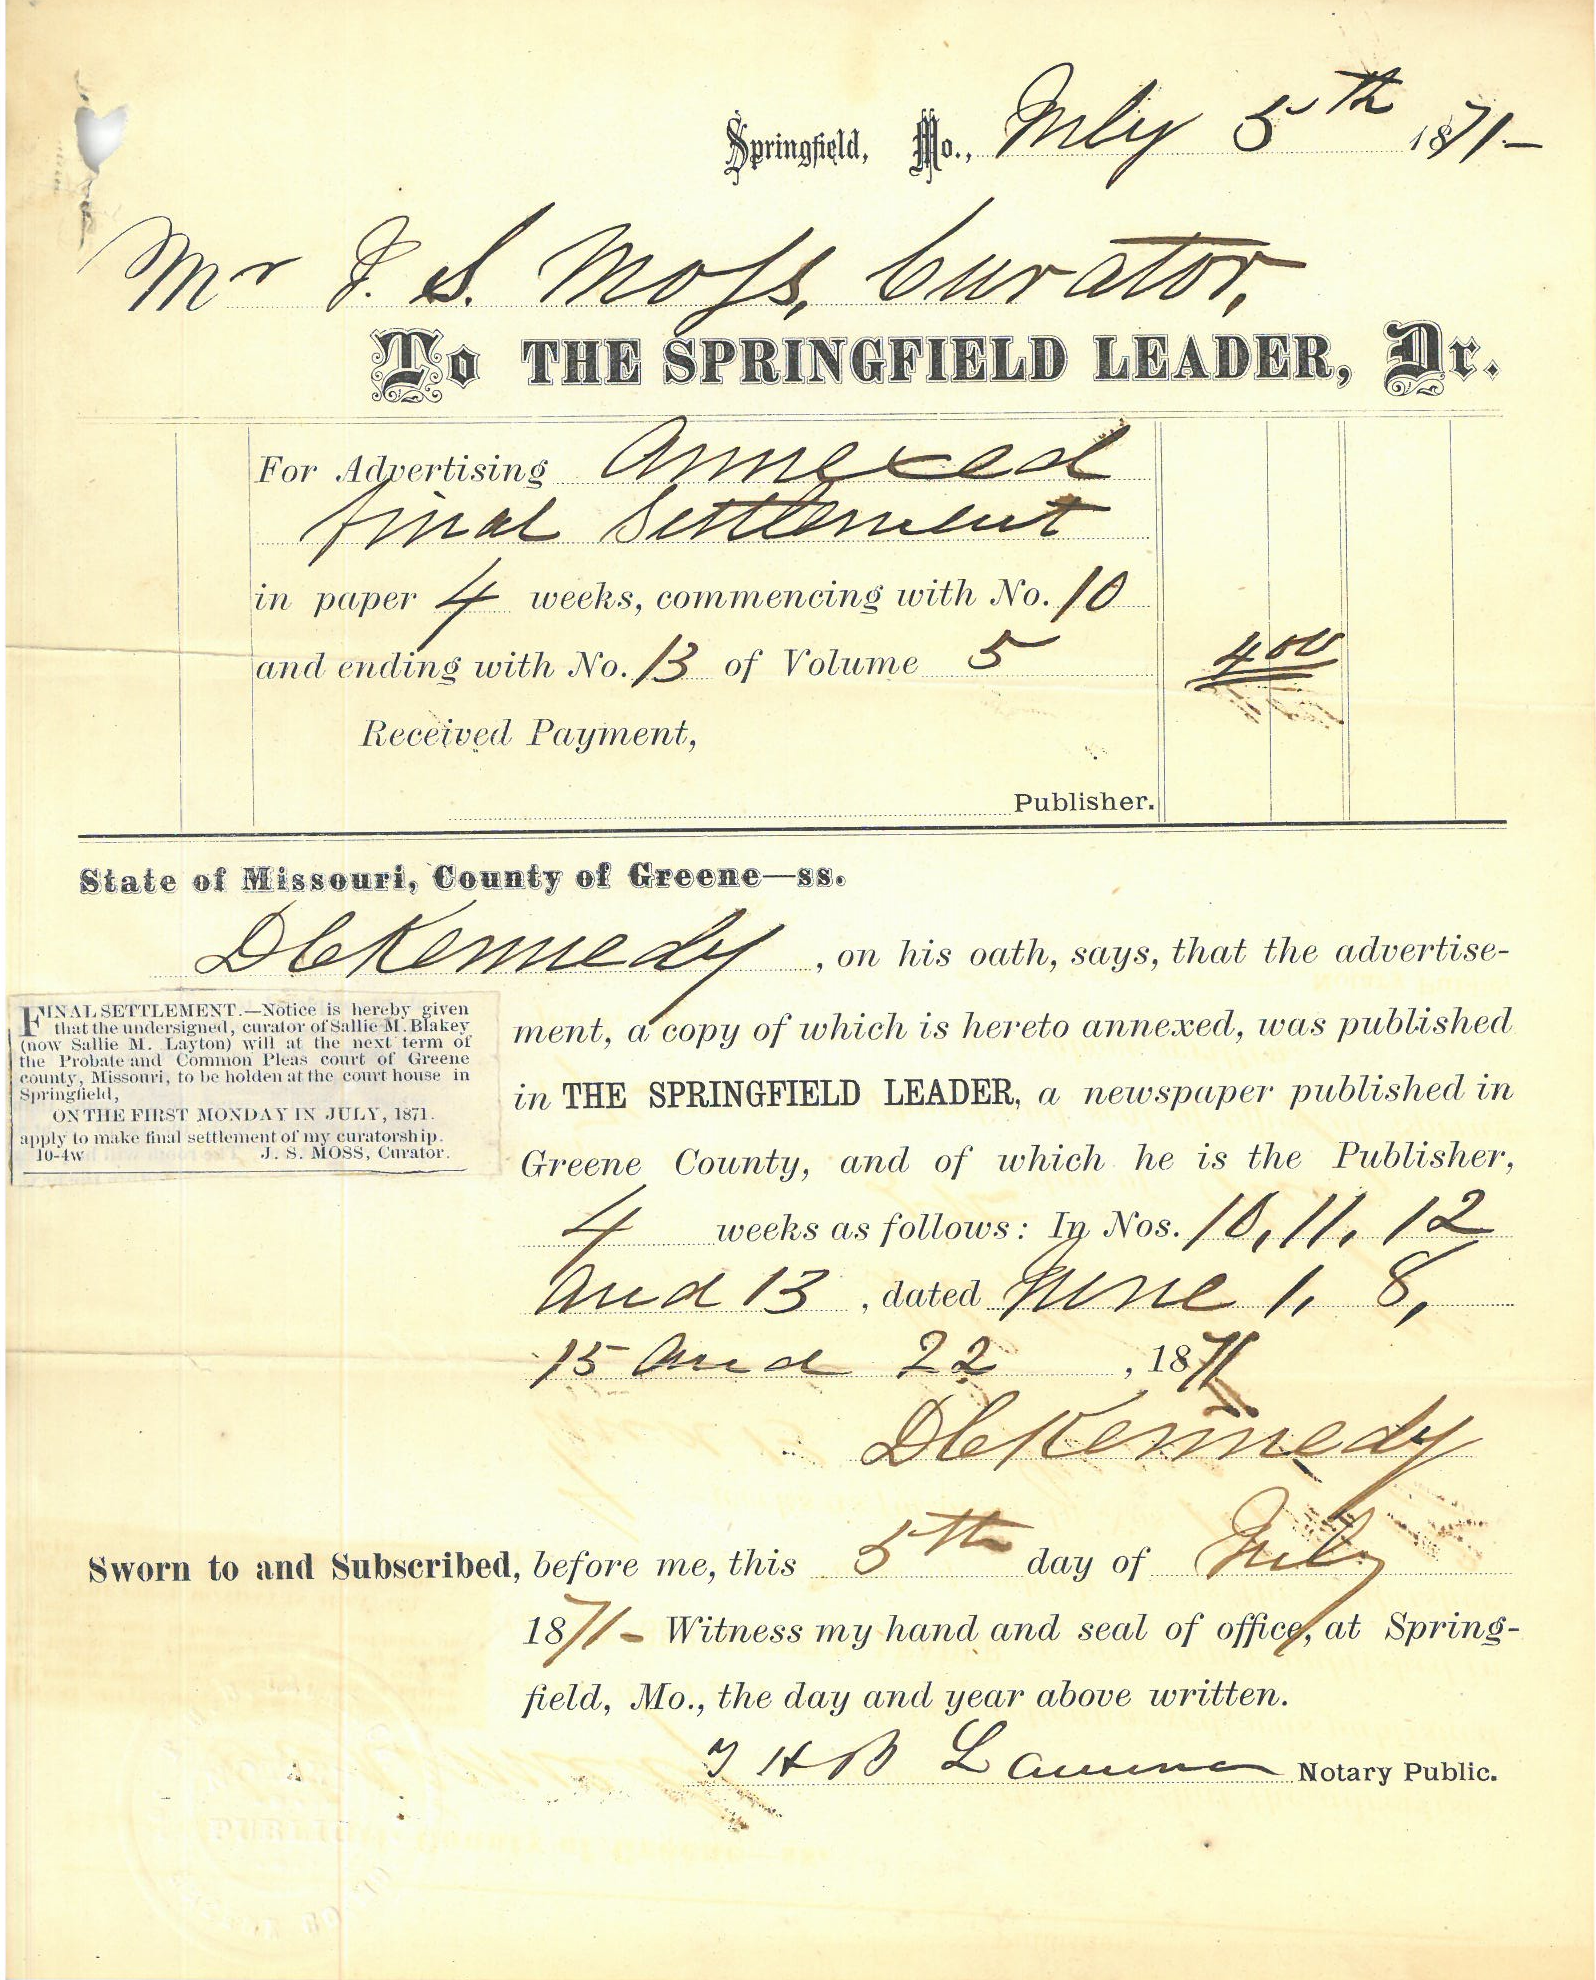 Springfield, Mo., July 5th 1871-
Mr J. S. Moss, Curator,
To THE SPRINGFIELD LEADER, Dr.
For Advertising Annexed
final Settlement
in paper 4 weeks, commencing with No. 10
and ending with No. 13 of Volume 5 4 00
Received Payment,
Publisher.
State of Missouri, County of Greene—ss.
D C Kennedy, on his oath, says, that the advertise-
ment, a copy of which is hereto annexed, was published
in THE SPRINGFIELD LEADER, a newspaper published in
Greene County, and of which he is the Publisher,
4 weeks as follows: In Nos. 10, 11, 12
and 13, dated June 1, 8,
15 and 22, 1871
D C Kennedy
FINAL SETTLEMENT.—Notice is hereby given
that the undersigned, curator of Sallie M. Blakey
(now Sallie M. Layton) will at the next term of
the Probate and Common Pleas court of Greene
county, Missouri, to be holden at the court house in
Springfield,
ON THE FIRST MONDAY IN JULY, 1871.
apply to make final settlement of my curatorship.
10-4w J. S. MOSS, Curator.
Sworn to and Subscribed, before me, this 5th day of July
1871- Witness my hand and seal of office, at Spring-
field, Mo., the day and year above written.
H B Notary Public.